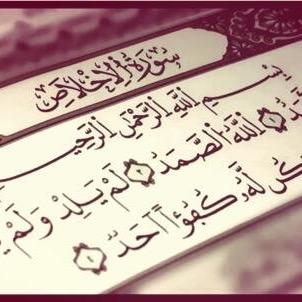 سُورَةُ الْإِخْلَاصِ
بِسْمِ اللَّهِ الرَّحْمَٰنِ الرَّحِيمِ
اللَّهُ الصَّمَدُ ۝ لَمْ يَلِدْ وَلَمْ
لَّهُ كُفُوًا أَحَدٌ ۝